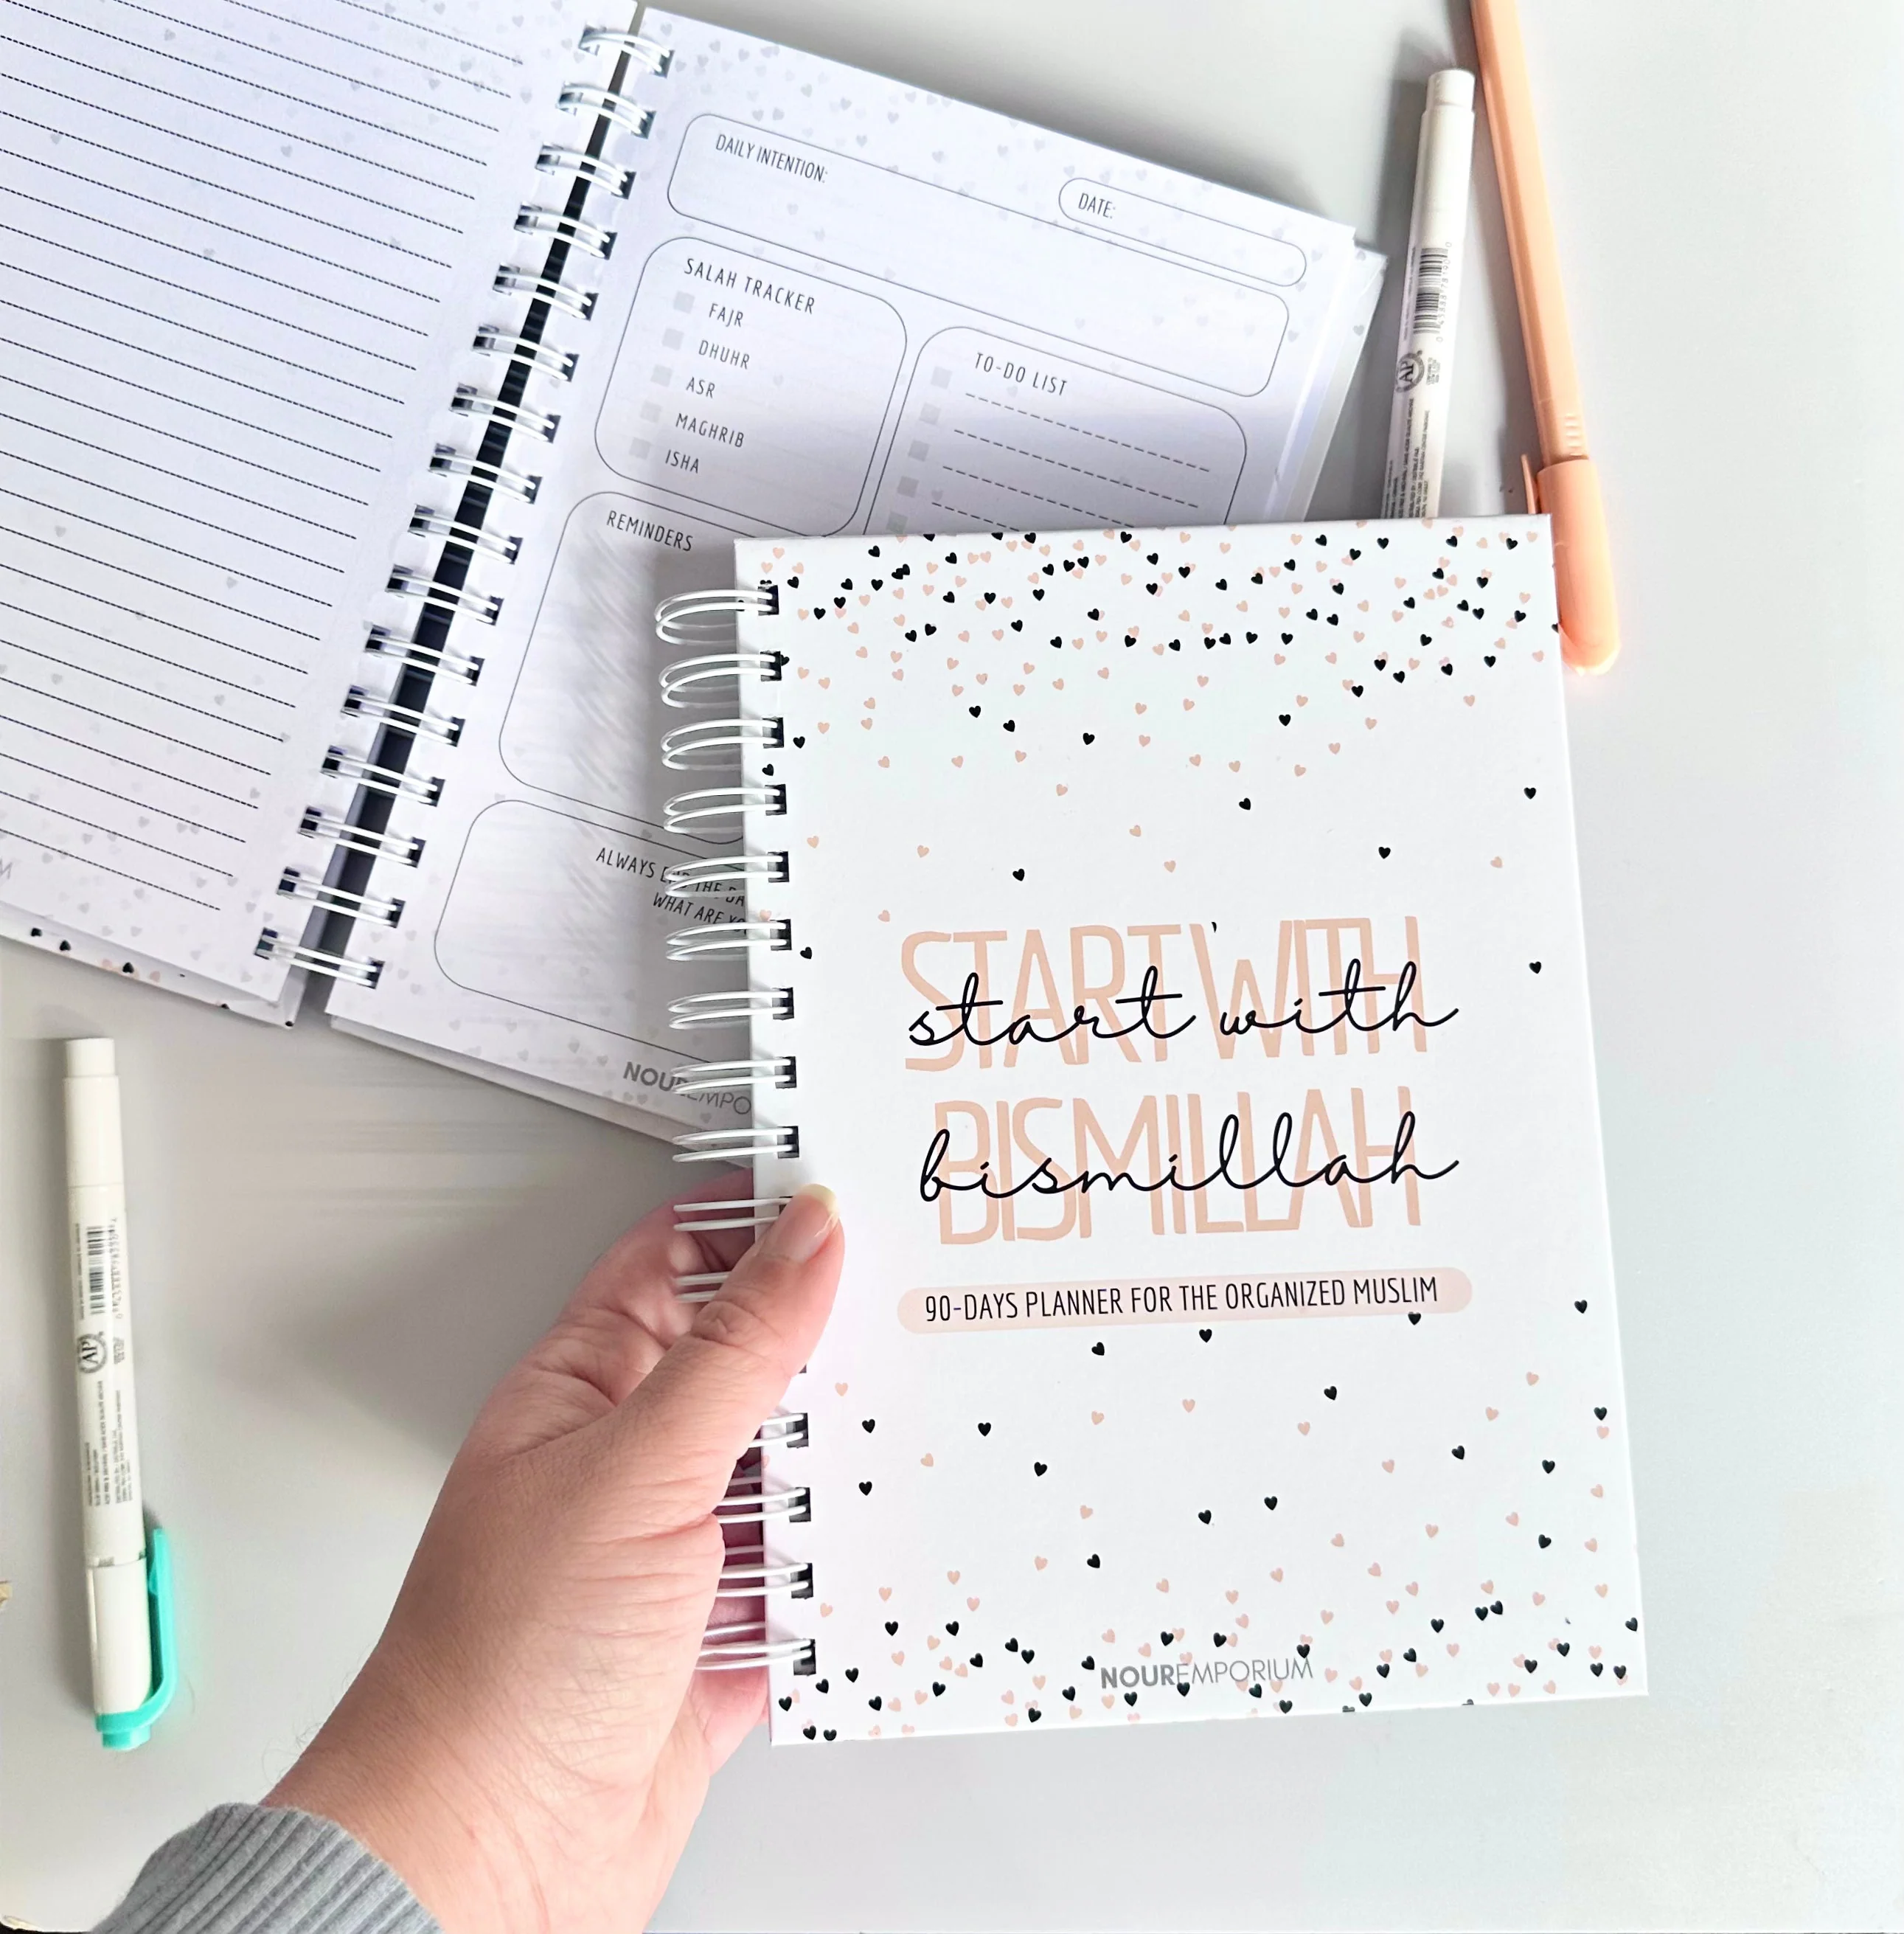 DAILY INTENTION:
DATE:
SALAH TRACKER
FAJR
DHUHR
ASR
MAGHRIB
ISHA
TO-DO LIST
REMINDERS
ALWAYS END THE DA
WHAT ARE YO
NOUREMPO
START WITH
start with
BISMILLAH
bismillah
90-DAYS PLANNER FOR THE ORGANIZED MUSLIM
NOUREMPORIUM
AP
AP